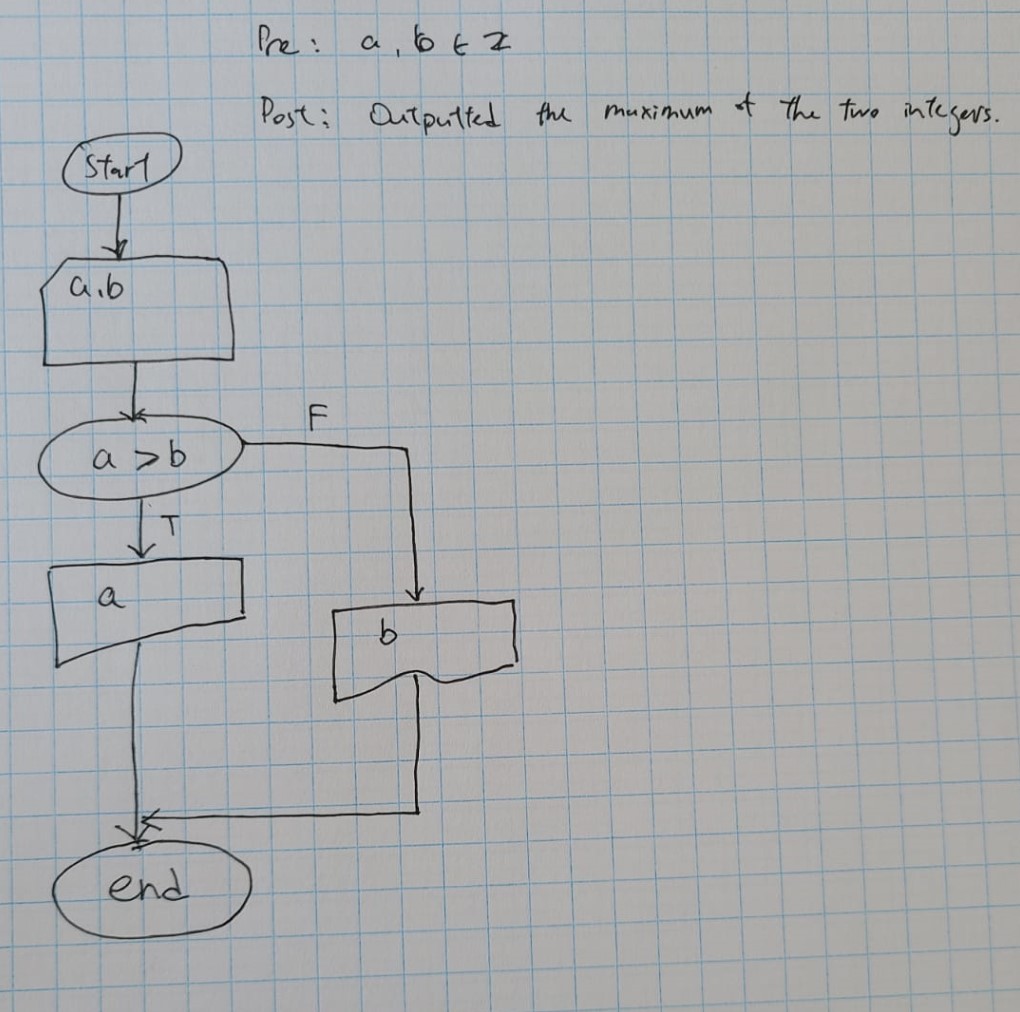 Pre: a, b ∈ Z
Post: Outputted the maximum of the two integers.
Start
a.b
a > b
F
T
a
b
end